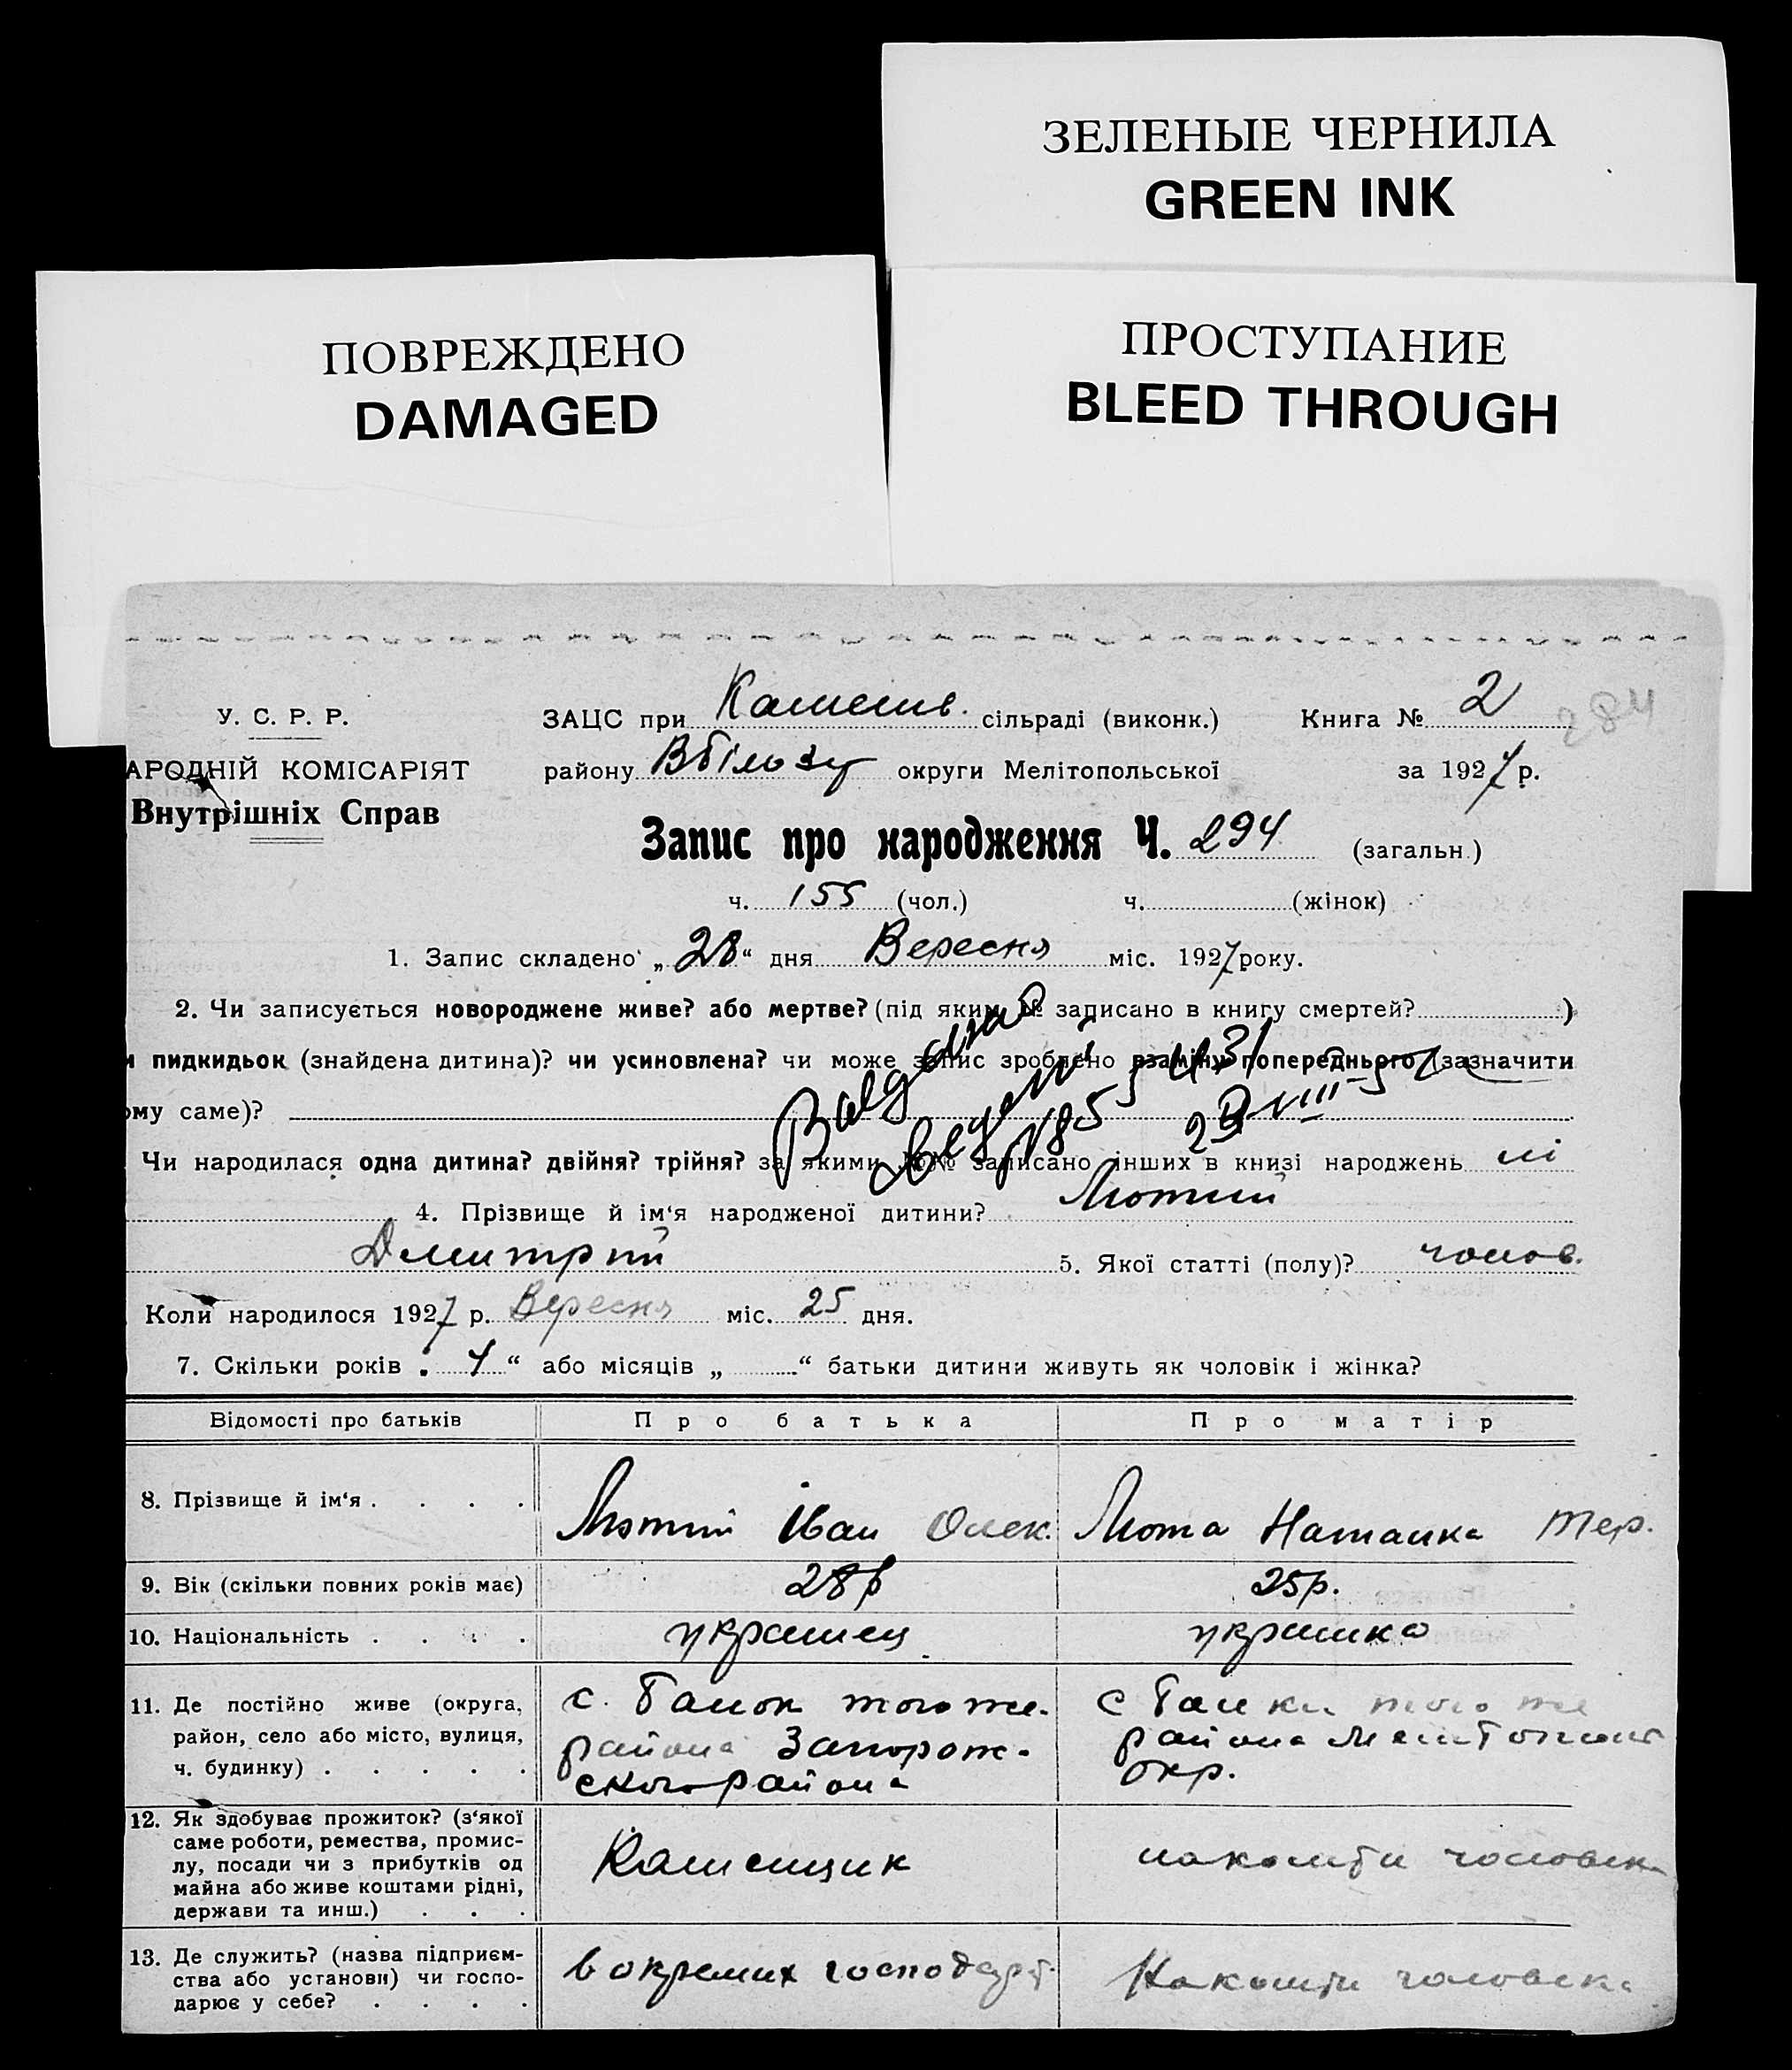 ЗЕЛЕНЫЕ ЧЕРНИЛА
GREEN INK
ПОВРЕЖДЕНО
DAMAGED
ПРОСТУПАНИЕ
BLEED THROUGH
У. С. Р. Р.
АРОДНІЙ КОМІСАРІЯТ
Внутрішніх Справ
ЗАЦС при сільраді (виконк.) Книга № 2 284
району округи Мелітопольської за 1927 р.
Запис про народження Ч. 294 (загальн.)
ч. 155 (чол.) ч. (жінок)
1. Запис складено „28“ дня Вересня міс. 1927 року.
2. Чи записується новороджене живе? або мертве? (під яким № записано в книгу смертей? )
и пидкидьок (знайдена дитина)? чи усиновлена? чи може запис зроблено взаміну попереднього (зазначити
ому саме)?
Чи народилася одна дитина? двійня? трійня? за якими №№ записано інших в книзі народжень ні
4. Прізвище й ім‘я народженої дитини? Лютий
Дмитрий 5. Якої статті (полу)? чолов.
Коли народилося 1927 р. Вересня міс. 25 дня.
7. Скільки років „ 4 “ або місяців „ “ батьки дитини живуть як чоловік і жінка?
Відомості про батьків Про батька Про матір
8. Прізвище й ім‘я . . . . Лютий Іван Олек. Люта Наталка Тер.
9. Вік (скільки повних років має) 28р 25р.
10. Національність . . . . українец українка
11. Де постійно живе (округа,
район, село або місто, вулиця,
ч. будинку) . . . . .
с. Балок того же.
района Запорож-
ского района
с Балки того же
района
окр.
12. Як здобуває прожиток? (з‘якої
саме роботи, ремества, промис-
лу, посади чи з прибутків од
майна або живе коштами рідні,
держави та инш.) . . .
Каменщик
на кошти чоловіка
13. Де служить? (назва підприєм-
ства або установи) чи госпо-
дарює у себе? . . . .
в окремих господарт.
На кошти чоловіка